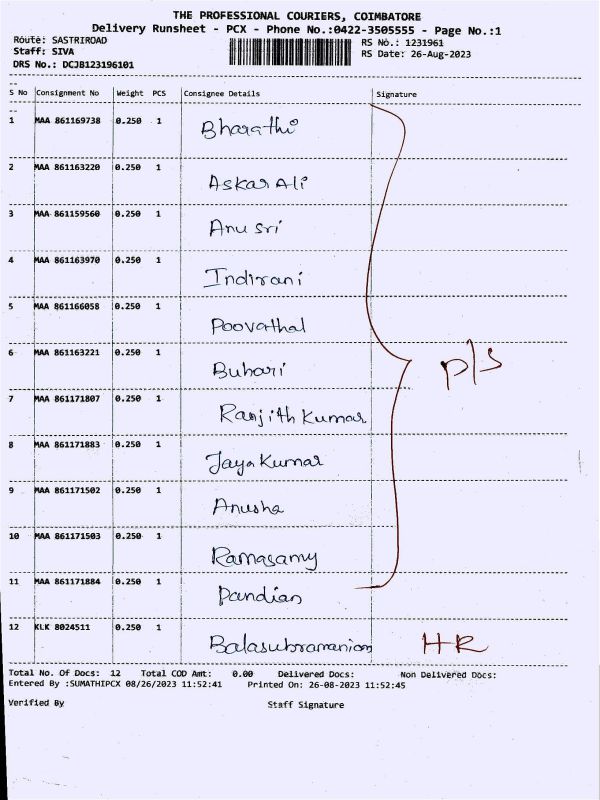 THE PROFESSIONAL COURIERS, COIMBATORE
Delivery Runsheet - PCX - Phone No.:0422-3505555 - Page No.:1
Route: SASTRIROAD RS No.: 1231961
Staff: SIVA RS Date: 26-Aug-2023
DRS No.: DCJB123196101
S No Consignment No Weight PCS Consignee Details Signature
1 MAA 861169738 0.250 1 Bharathi
2 MAA 861163220 0.250 1 Askar Ali
3 MAA 861159560 0.250 1 Anu Sri
4 MAA 861163970 0.250 1 Indirani
5 MAA 861166058 0.250 1 Poovathal
6 MAA 861163221 0.250 1 Buhari P/s
7 MAA 861171807 0.250 1 Ranjith Kumar
8 MAA 861171883 0.250 1 Jaya Kumar
9 MAA 861171502 0.250 1 Anusha
10 MAA 861171503 0.250 1 Ramasamy
11 MAA 861171884 0.250 1 Pandian
12 KLK 8024511 0.250 1 Balasubramaniam HR
Total No. Of Docs: 12 Total COD Amt: 0.00 Delivered Docs: Non Delivered Docs:
Entered By :SUMATHIPCX 08/26/2023 11:52:41 Printed On: 26-08-2023 11:52:45
Verified By Staff Signature